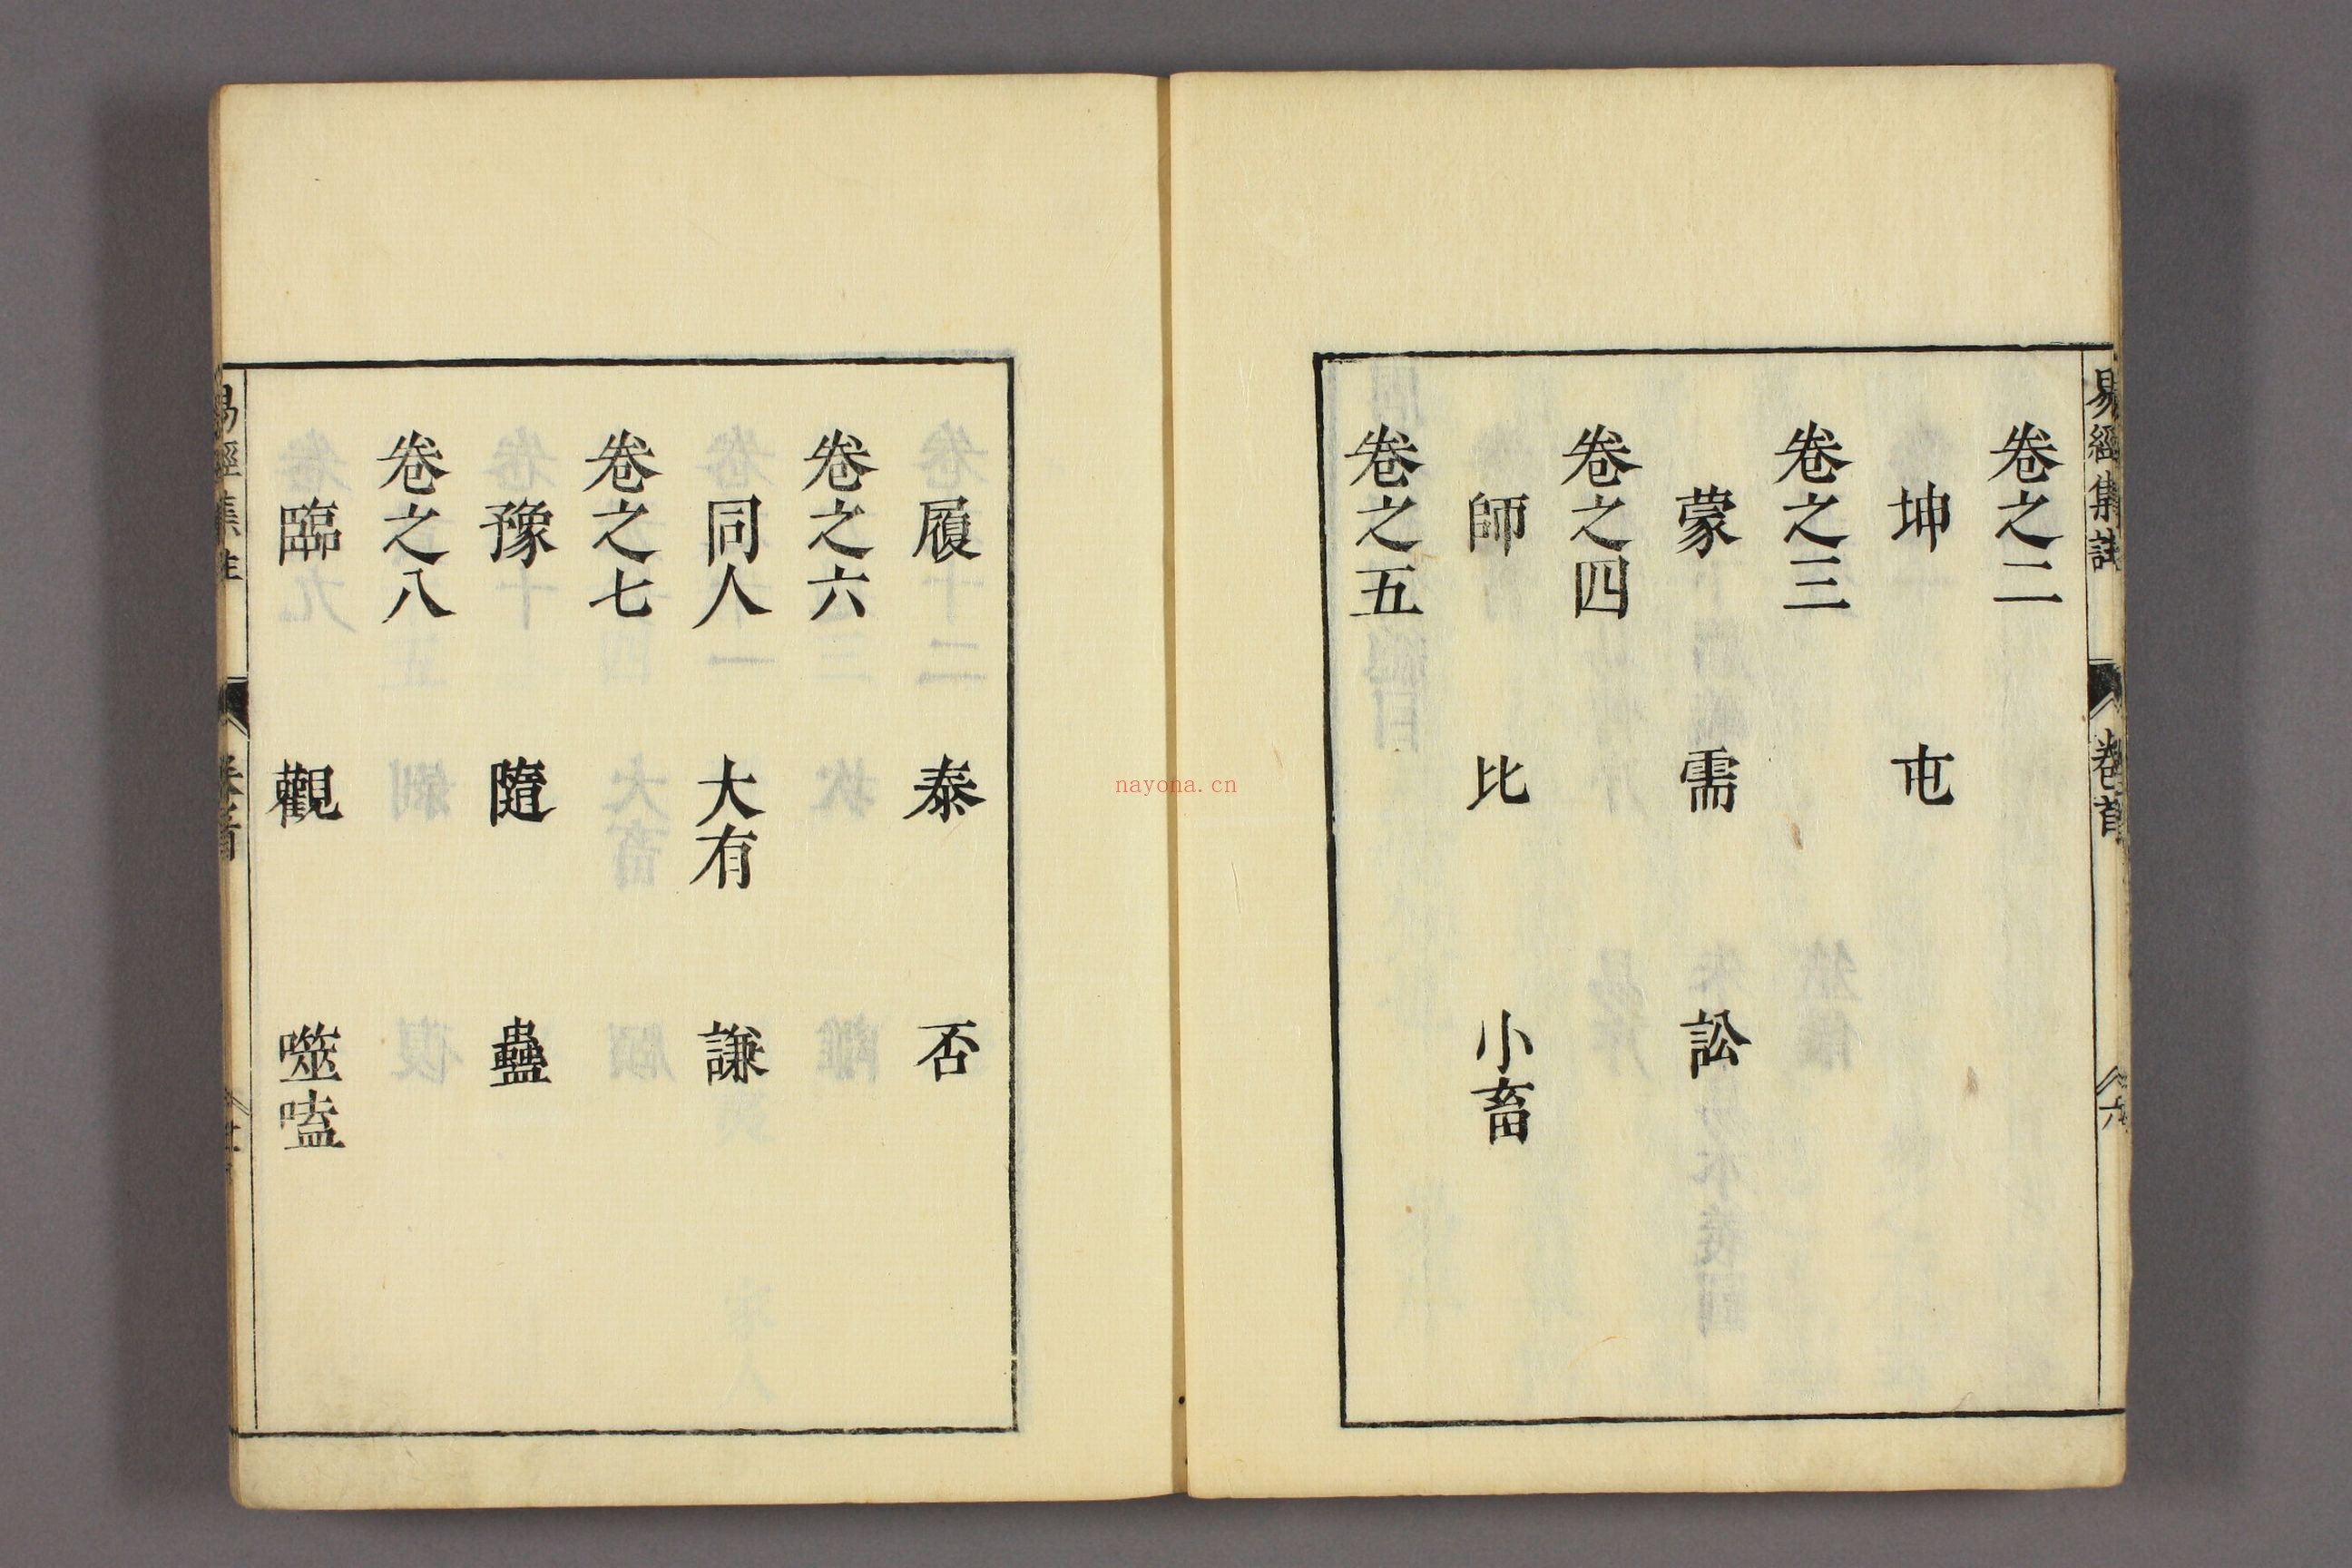 易經集註 卷首 六
卷之二
坤 屯
卷之三
蒙 需 訟
卷之四
師 比 小畜
卷之五
履 泰 否
卷之六
同人 大有 謙
卷之七
豫 隨 蠱
卷之八
臨 觀 噬嗑
易經集註 卷首
nayona.cn